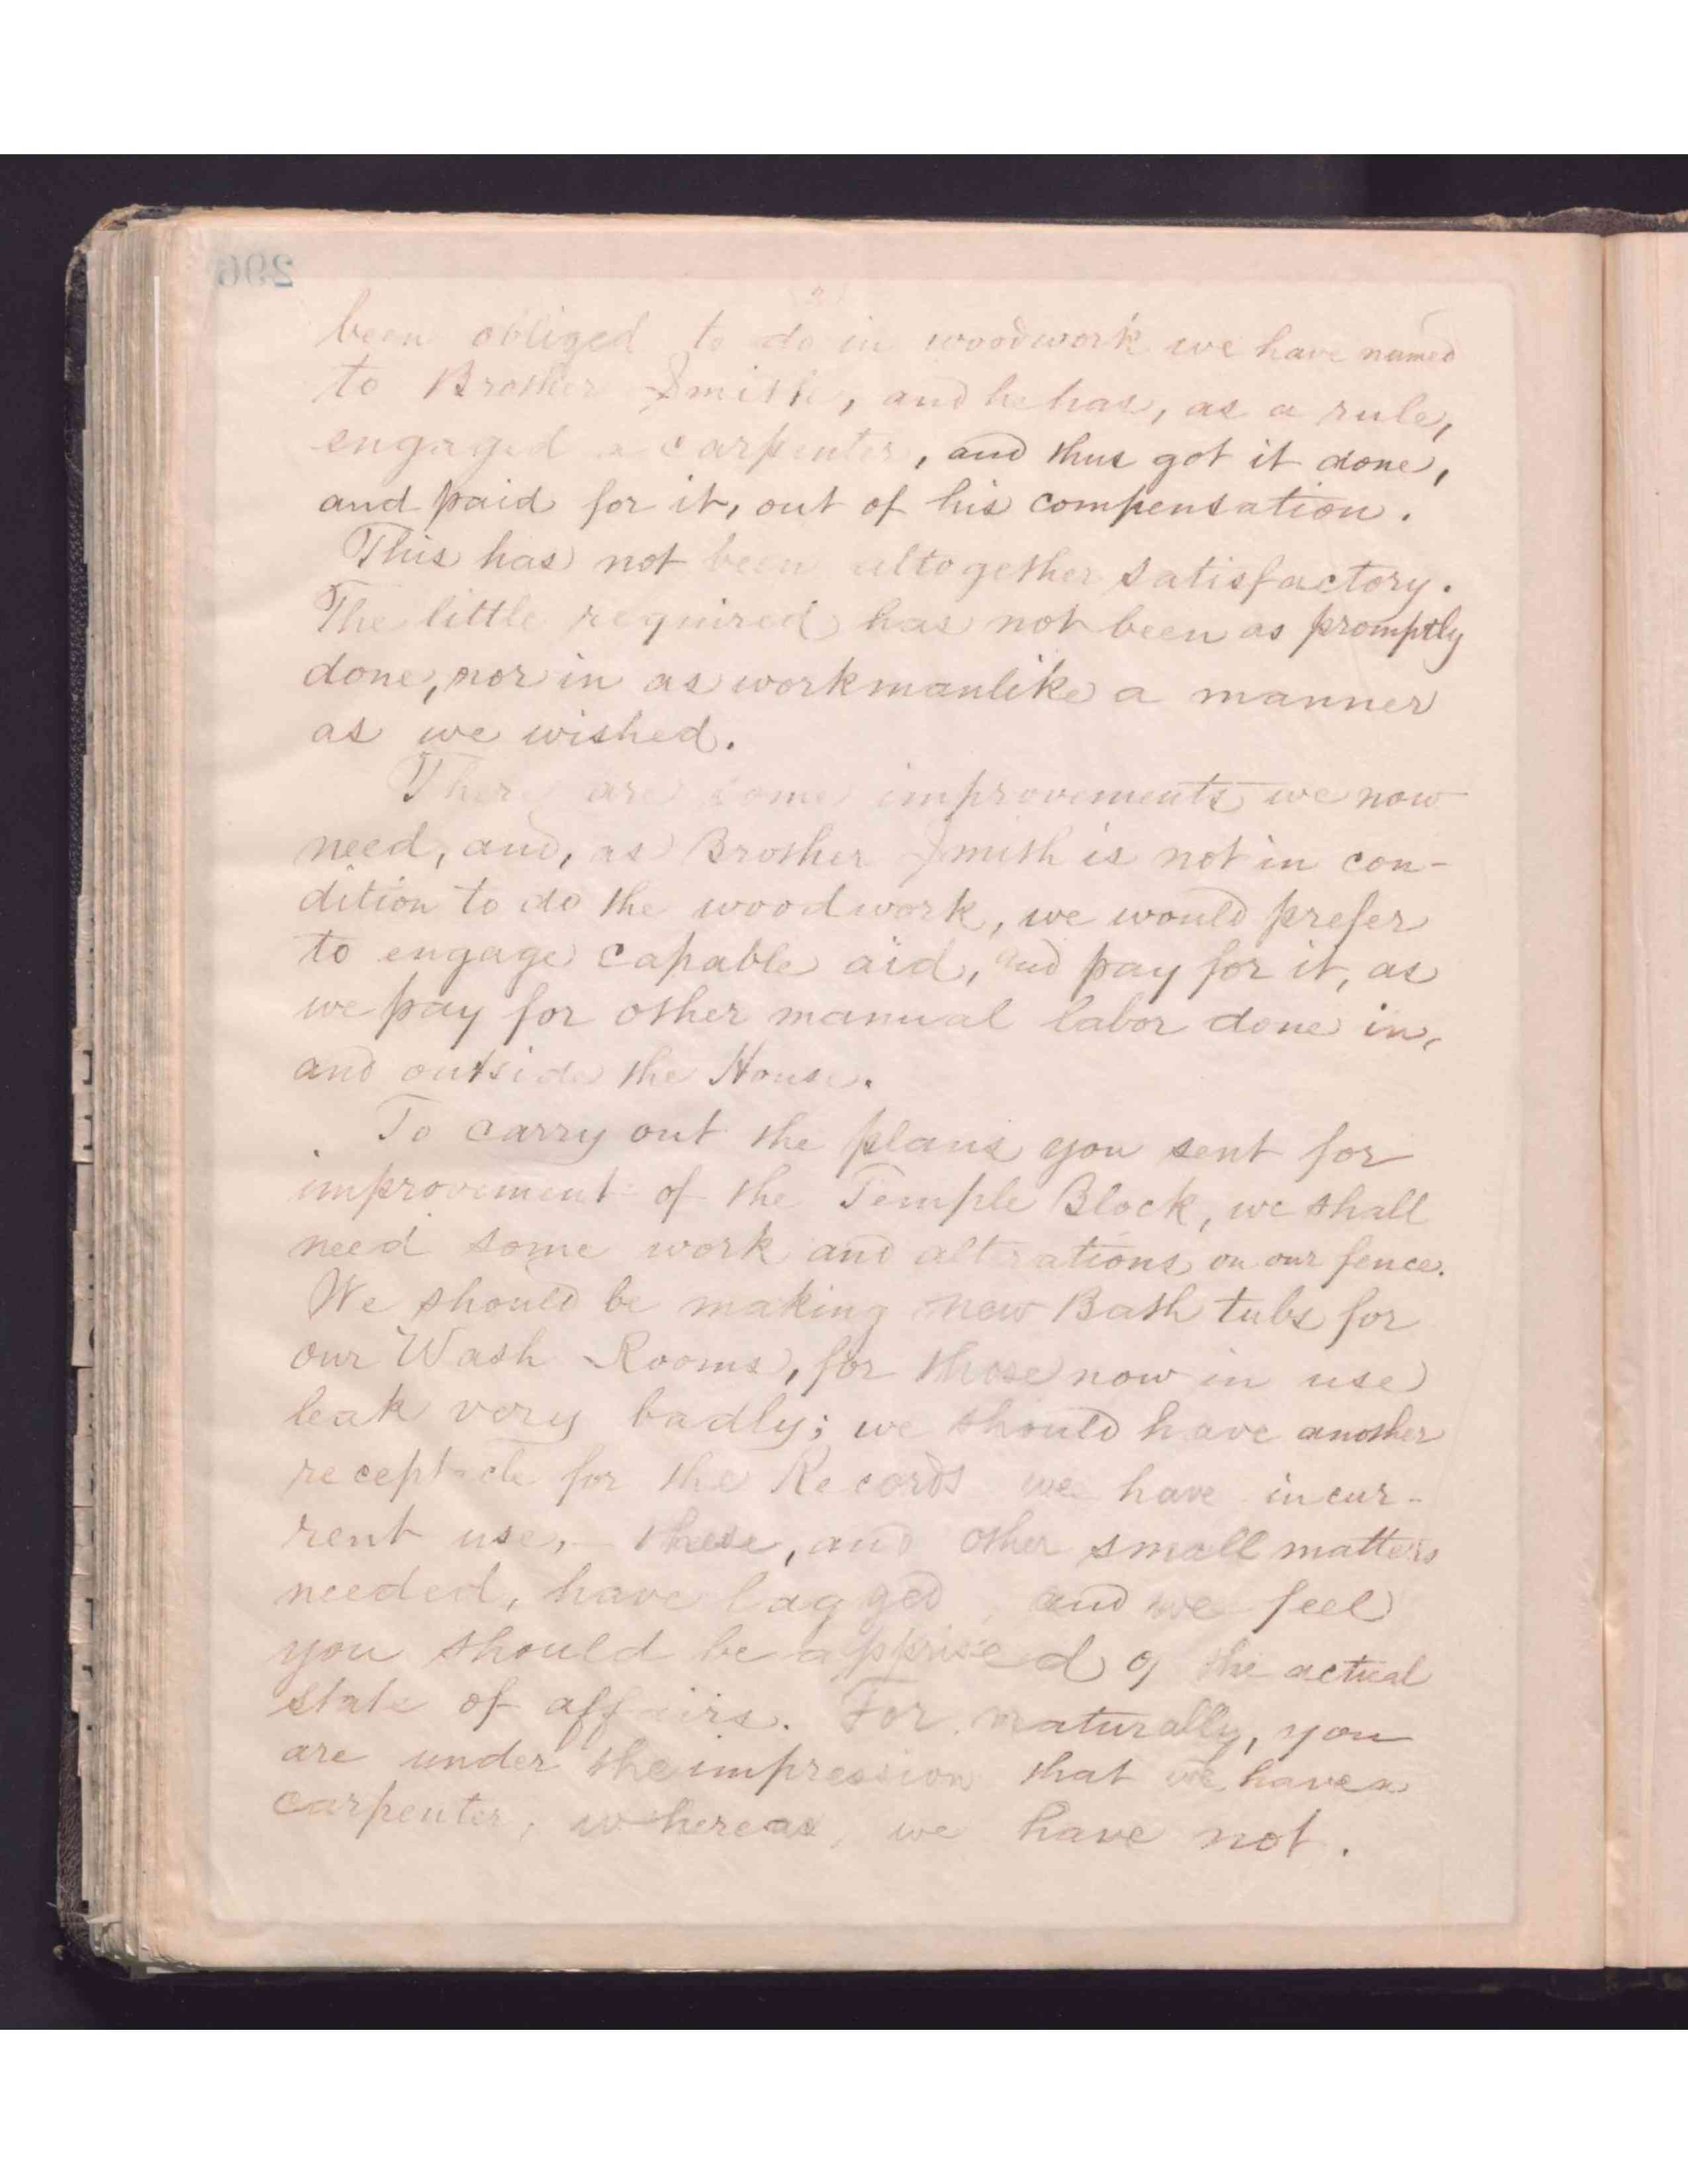 296
been obliged to do in woodwork we have named
to Brother Smith, and he has, as a rule,
engaged a carpenter, and thus got it done,
and paid for it, out of his compensation.
This has not been altogether satisfactory.
The little required has not been as promptly
done, nor in as workmanlike a manner
as we wished.
There are some improvements we now
need, and, as Brother Smith is not in con-
dition to do the woodwork, we would prefer
to engage capable aid, and pay for it, as
we pay for other manual labor done in,
and outside the House.
To carry out the plans you sent for
improvement of the Temple Block, we shall
need some work and alterations on our fence.
We should be making new Bath tubs for
our Wash Rooms, for those now in use
leak very badly; we should have another
receptacle for the Records we have in cur-
rent use,- these, and other small matters
needed, have lagged, and we feel
you should be apprised of the actual
state of affairs. For, naturally, you
are under the impression that we have a
carpenter, whereas, we have not.